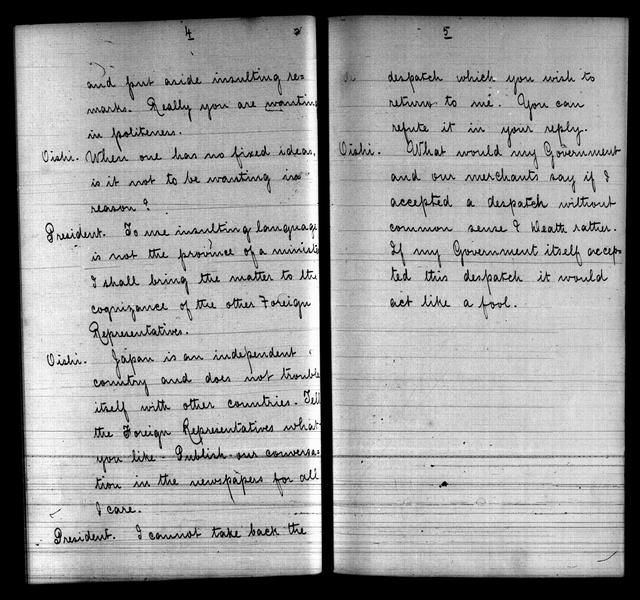 4
and put aside insulting re=
marks. Really you are wanting
in politeness.
Oishi. When one has no fixed ideas,
is it not to be wanting in
reason?
President. To use insulting language
is not the province of a ministe
I shall bring the matter to the
cognizance of the other Foreign
Representatives.
Oishi. Japan is an independent
country and does not trouble
itself with other countries. Tell
the Foreign Representatives what
you like - Publish our conversa=
tion in the newspapers for all
I care.
President. I cannot take back the
5
despatch which you wish to
return to me. You can
refute it in your reply.
Oishi. What would my Government
and our merchants say if I
accepted a despatch without
common sense? Death rather.
If my Government itself accep=
ted this despatch it would
act like a fool.